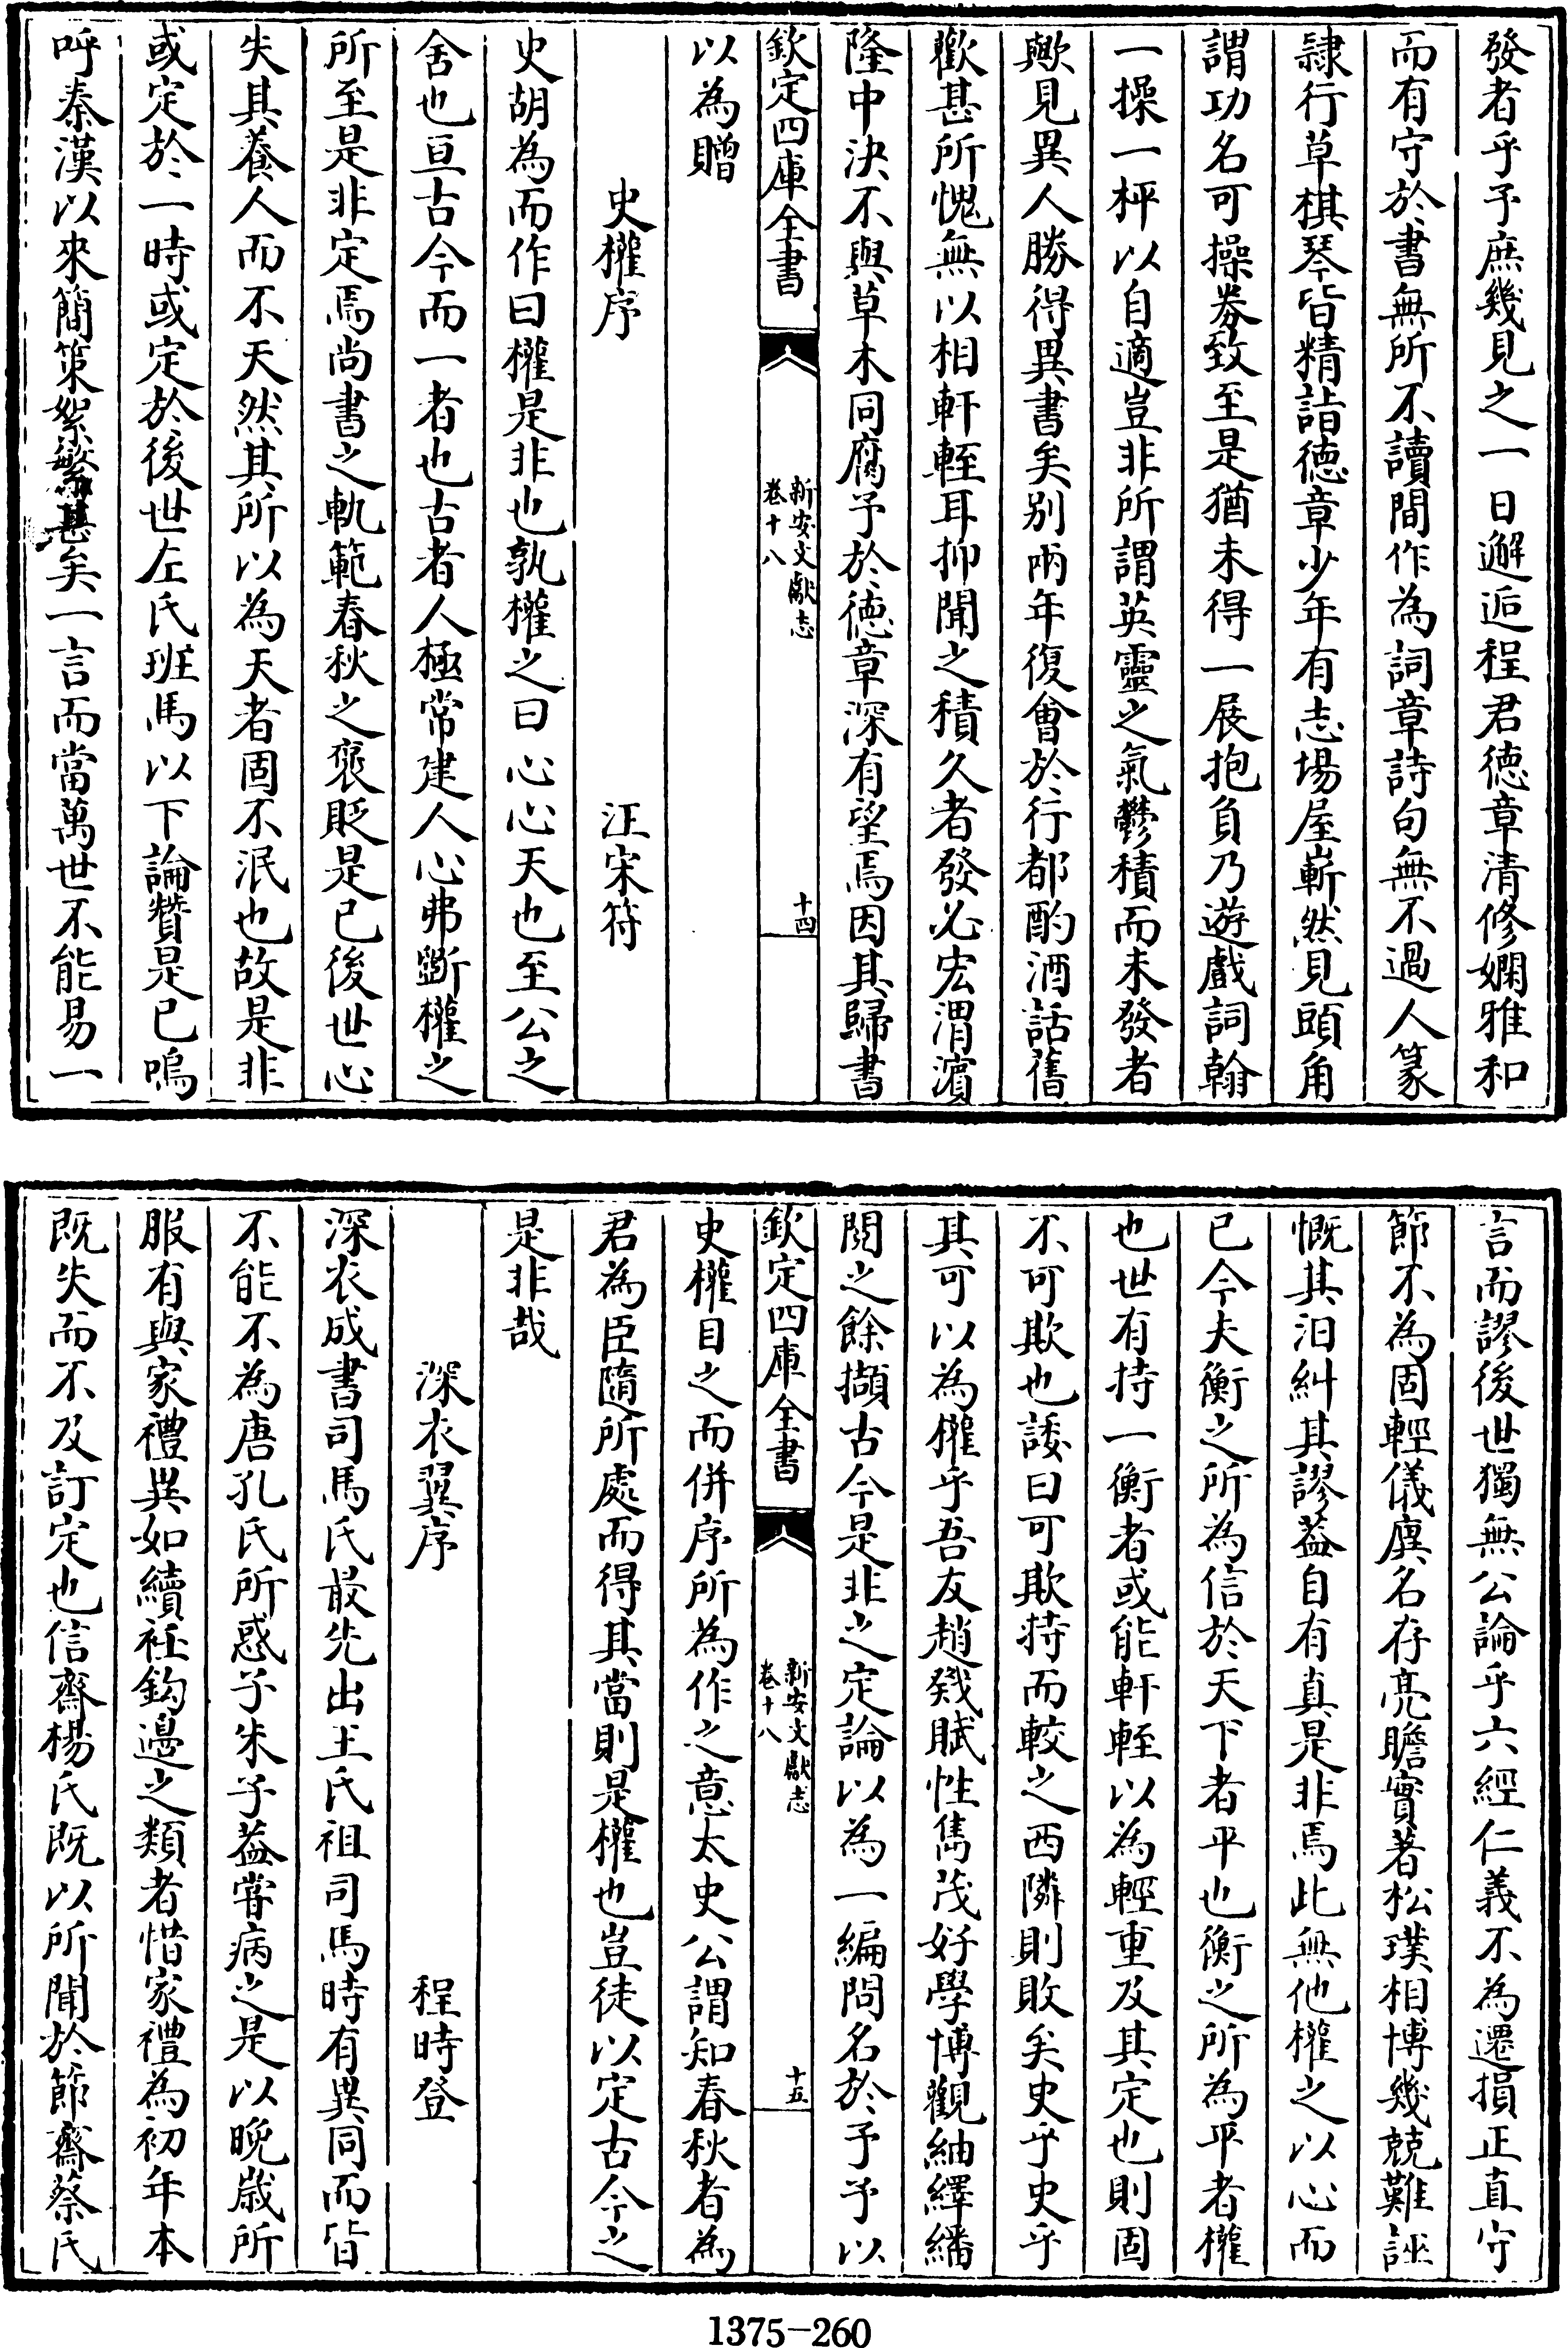 發者乎予庶幾見之一日邂逅程君徳章清修嫻雅和
而有守於書無所不讀間作為詞章詩句無不過人篆
隷行草棋琴皆精詣徳章少年有志場屋嶄然見頭角
謂功名可操券致至是猶未得一展抱負乃遊戲詞翰
一操一枰以自適豈非所謂英靈之氣鬱積而未發者
歟見異人勝得異書矣别兩年復會於行都酌酒話舊
歡甚所愧無以相軒輊耳抑聞之積久者發必宏渭濵
隆中決不與草木同腐予於徳章深有望焉因其歸書
欽定四庫全書
新安文獻志
卷十八
十四
以為贈
史權序
汪宋符
史胡為而作曰權是非也孰權之曰心心天也至公之
舍也亘古今而一者也古者人極常建人心弗斷權之
所至是非定焉尚書之軌範春秋之褒貶是已後世心
失其養人而不天然其所以為天者固不泯也故是非
或定於一時或定於後世左氏班馬以下論贊是已嗚
呼秦漢以來簡策絮繁甚矣一言而當萬世不能易一
言而謬後世獨無公論乎六經仁義不為遷損正直守
節不為固輕儀廙名存亮瞻實著松璞相博幾兢難誣
慨其汩糾其謬葢自有真是非焉此無他權之以心而
已今夫衡之所為信於天下者平也衡之所為平者權
也世有持一衡者或能軒輊以為輕重及其定也則固
不可欺也諉曰可欺特而較之西隣則敗矣史乎史乎
其可以為權乎吾友趙發賦性雋茂好學博觀紬繹繙
閱之餘擷古今是非之定論以為一編問名於予予以
欽定四庫全書
新安文獻志
卷十八
十五
史權目之而併序所為作之意太史公謂知春秋者為
君為臣隨所處而得其當則是權也豈徒以定古今之
是非哉
深衣翼序
程時登
深衣成書司馬氏最先出王氏祖司馬時有異同而皆
不能不為唐孔氏所惑子朱子葢嘗病之是以晚歲所
服有與家禮異如續衽鈎邉之類者惜家禮為初年本
既失而不及訂定也信齋楊氏既以所聞於節齋蔡氏
1375-260